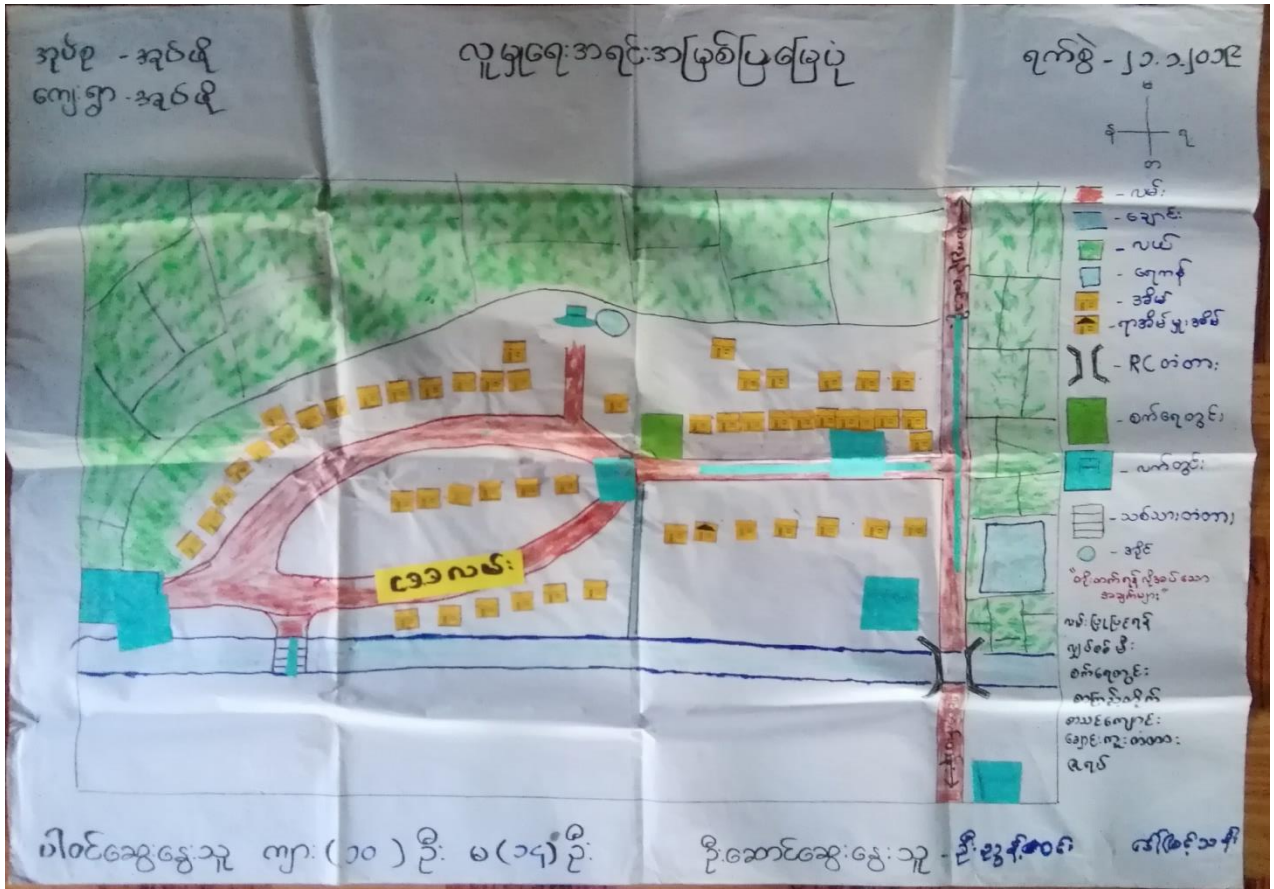 အုပ်စု - အုပ်ဖို
ကျေးရွာ - အုပ်ဖို
လူမှုရေးအရင်းအမြစ်ပြမြေပုံ
ရက်စွဲ - ၂၁.၁.၂၀၁၉
မ
န ရ
တ
- လမ်း
- ချောင်း
- လယ်
- ရေကန်
- အိမ်
- ရာအိမ်မှူးအိမ်
- RC တံတား
- စက်ရေတွင်း
- လက်တွင်း
- သစ်သားတံတား
"ဝိုးတက်ရန်လိုအပ်သော
အချက်များ"
လမ်းပြုပြင်ရန်
လျှပ်စစ်မီး
စက်ရေတွင်း
စာကြည့်တိုက်
စာသင်ကျောင်း
ချောင်းကူးတံတား
ဇရပ်
ဒေါ်ဒေါ်လမ်း
ပါဝင်ဆွေးနွေးသူ ကျား (၁၀) ဦး မ (၁၄) ဦး
ဦးဆောင်ဆွေးနွေးသူ -